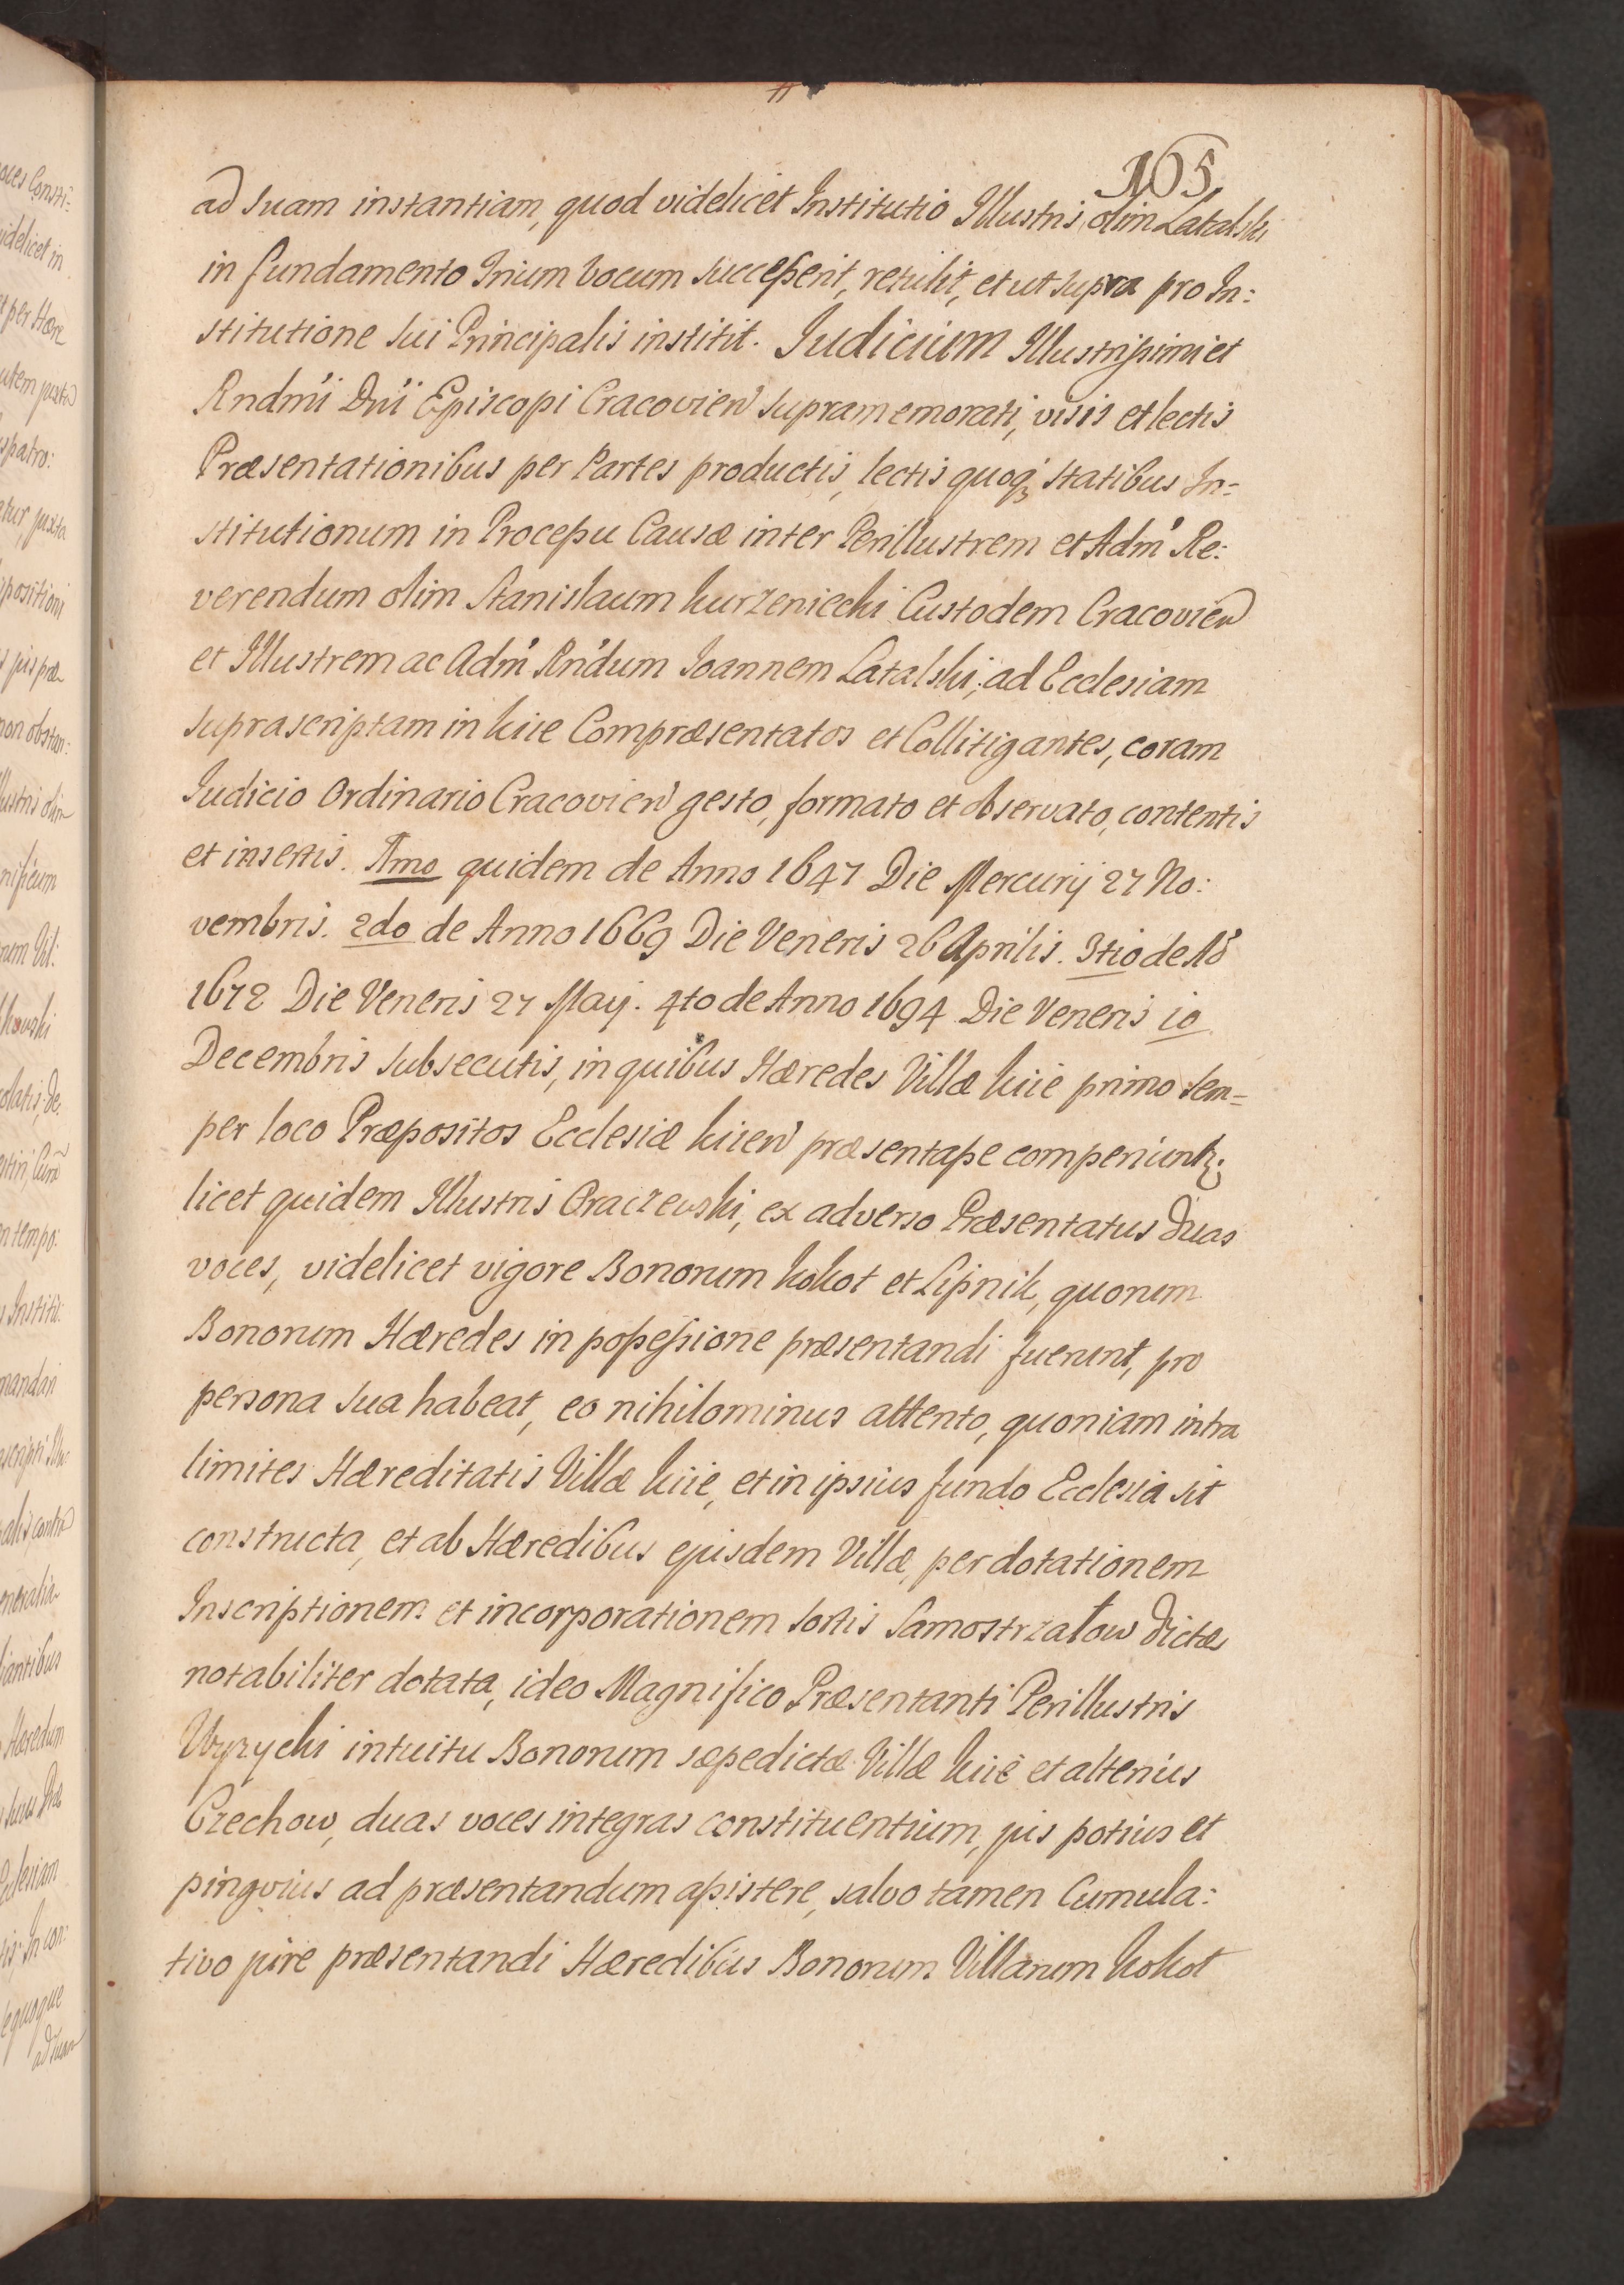 165
ad suam instantiam, quod videlicet Institutio Illustris olim Latalski
in fundamento trium vocum successerit, retulit, et ut supra pro In:
stitutione sui Principalis institit. Iudicium Illustrissimi et
Rndmi Dni Episcopi Cracovien supramemorati, visis et lectis
Præsentationibus per Partes productis, lectis quoq; statibus In=
stitutionum in Processu Causæ inter Perillustrem et Adm Re:
verendum olim Stanislaum Kurzeniecki Custodem Cracovien
et Illustrem ac Adm Rndum Ioannem Latalski, ad Ecclesiam
suprascriptam in Kiie Compræsentatos et Collitigantes, coram
Iudicio Ordinario Cracovien gesto, formato et observato, contentis
et insertis. 1mo quidem de Anno 1647 Die Mercurij 27 No:
vembris. 2do de Anno 1669 Die Veneris 26 Aprilis. 3tio de Ao
1672 Die Veneris 27 Maij. 4to de Anno 1694 Die Veneris 10
Decembris subsecutis, in quibus Hæredes Villæ Kiie primo sem=
per loco Præpositos Ecclesiæ Kiien præsentasse comperiuntr;
licet quidem Illustris Oraczewski, ex adverso Præsentatus duas
voces, videlicet vigore Bonorum Kokot et Lipnik, quorum
Bonorum Hæredes in possessione præsentandi fuerunt, pro
persona sua habeat, eo nihilominus attento, quoniam intra
limites Hæreditatis Villæ Kiie, et in ipsius fundo Ecclesia sit
constructa, et ab Hæredibus ejusdem Villæ, per dotationem
Inscriptionem et incorporationem sortis Samostrzałow dictæ
notabiliter dotata, ideo Magnifico Præsentanti Perillustris
Wyrzycki intuitu Bonorum sæpedictæ Villæ Kiie et alterius
Czechow, duas voces integras constituentium, jus potius et
pingvius ad præsentandum assistere, salvo tamen Cumula:
tivo jure præsentandi Hæredibus Bonorum Villarum Kokot